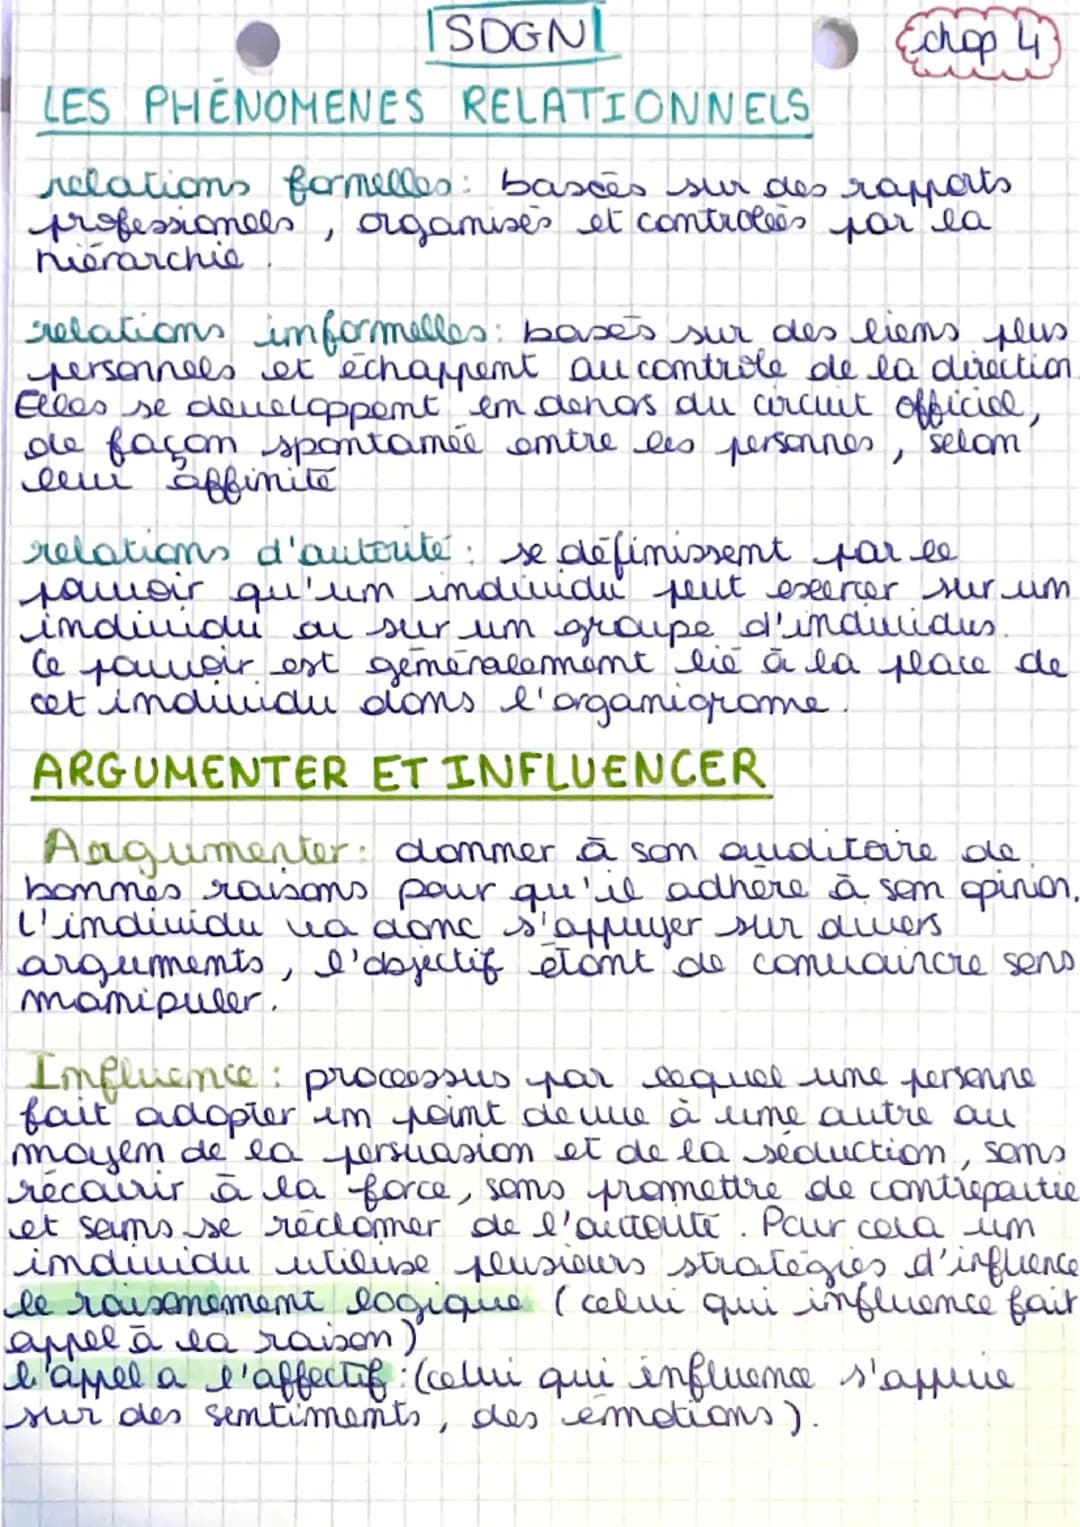 SDGN
chap 4
LES PHÉNOMENES RELATIONNELS
relations formelles: basées sur des rapports
professionnels, organisés et controlées par la
hiérarchie.
relations informelles: basés sur des liens plus
personnels et échappent au contrôle de la direction
Elles se developpent en dehors du circuit officiel,
de façon spontanée entre les personnes, selon
leur affinité
relations d'autorité: se définissent par le
pouvoir qu'un individu peut exercer sur un
individu ou sur un groupe d'individus.
Ce pouvoir est généralement lié à la place de
cet individu dans l'organigrame.
ARGUMENTER ET INFLUENCER
Argumenter: donner à son auditoire de
bonnes raisons pour qu'il adhère à son opinion.
L'individu va donc s'appuyer sur divers
arguments, l'objectif étant de convaincre sans
manipuler.
Influence: processus par lequel une personne
fait adopter un point de vue à une autre au
moyen de la persuasion et de la séduction, sans
récourir à la force, sans promettre de contrepartie
et sans se réclamer de l'autorité. Pour cela un
individu utilise plusieurs stratégies d'influence
le raisonement logique (celui qui influence fait
appel à la raison)
l'appel a l'affectif: (celui qui influence s'appuie
sur des sentiments, des émotions).